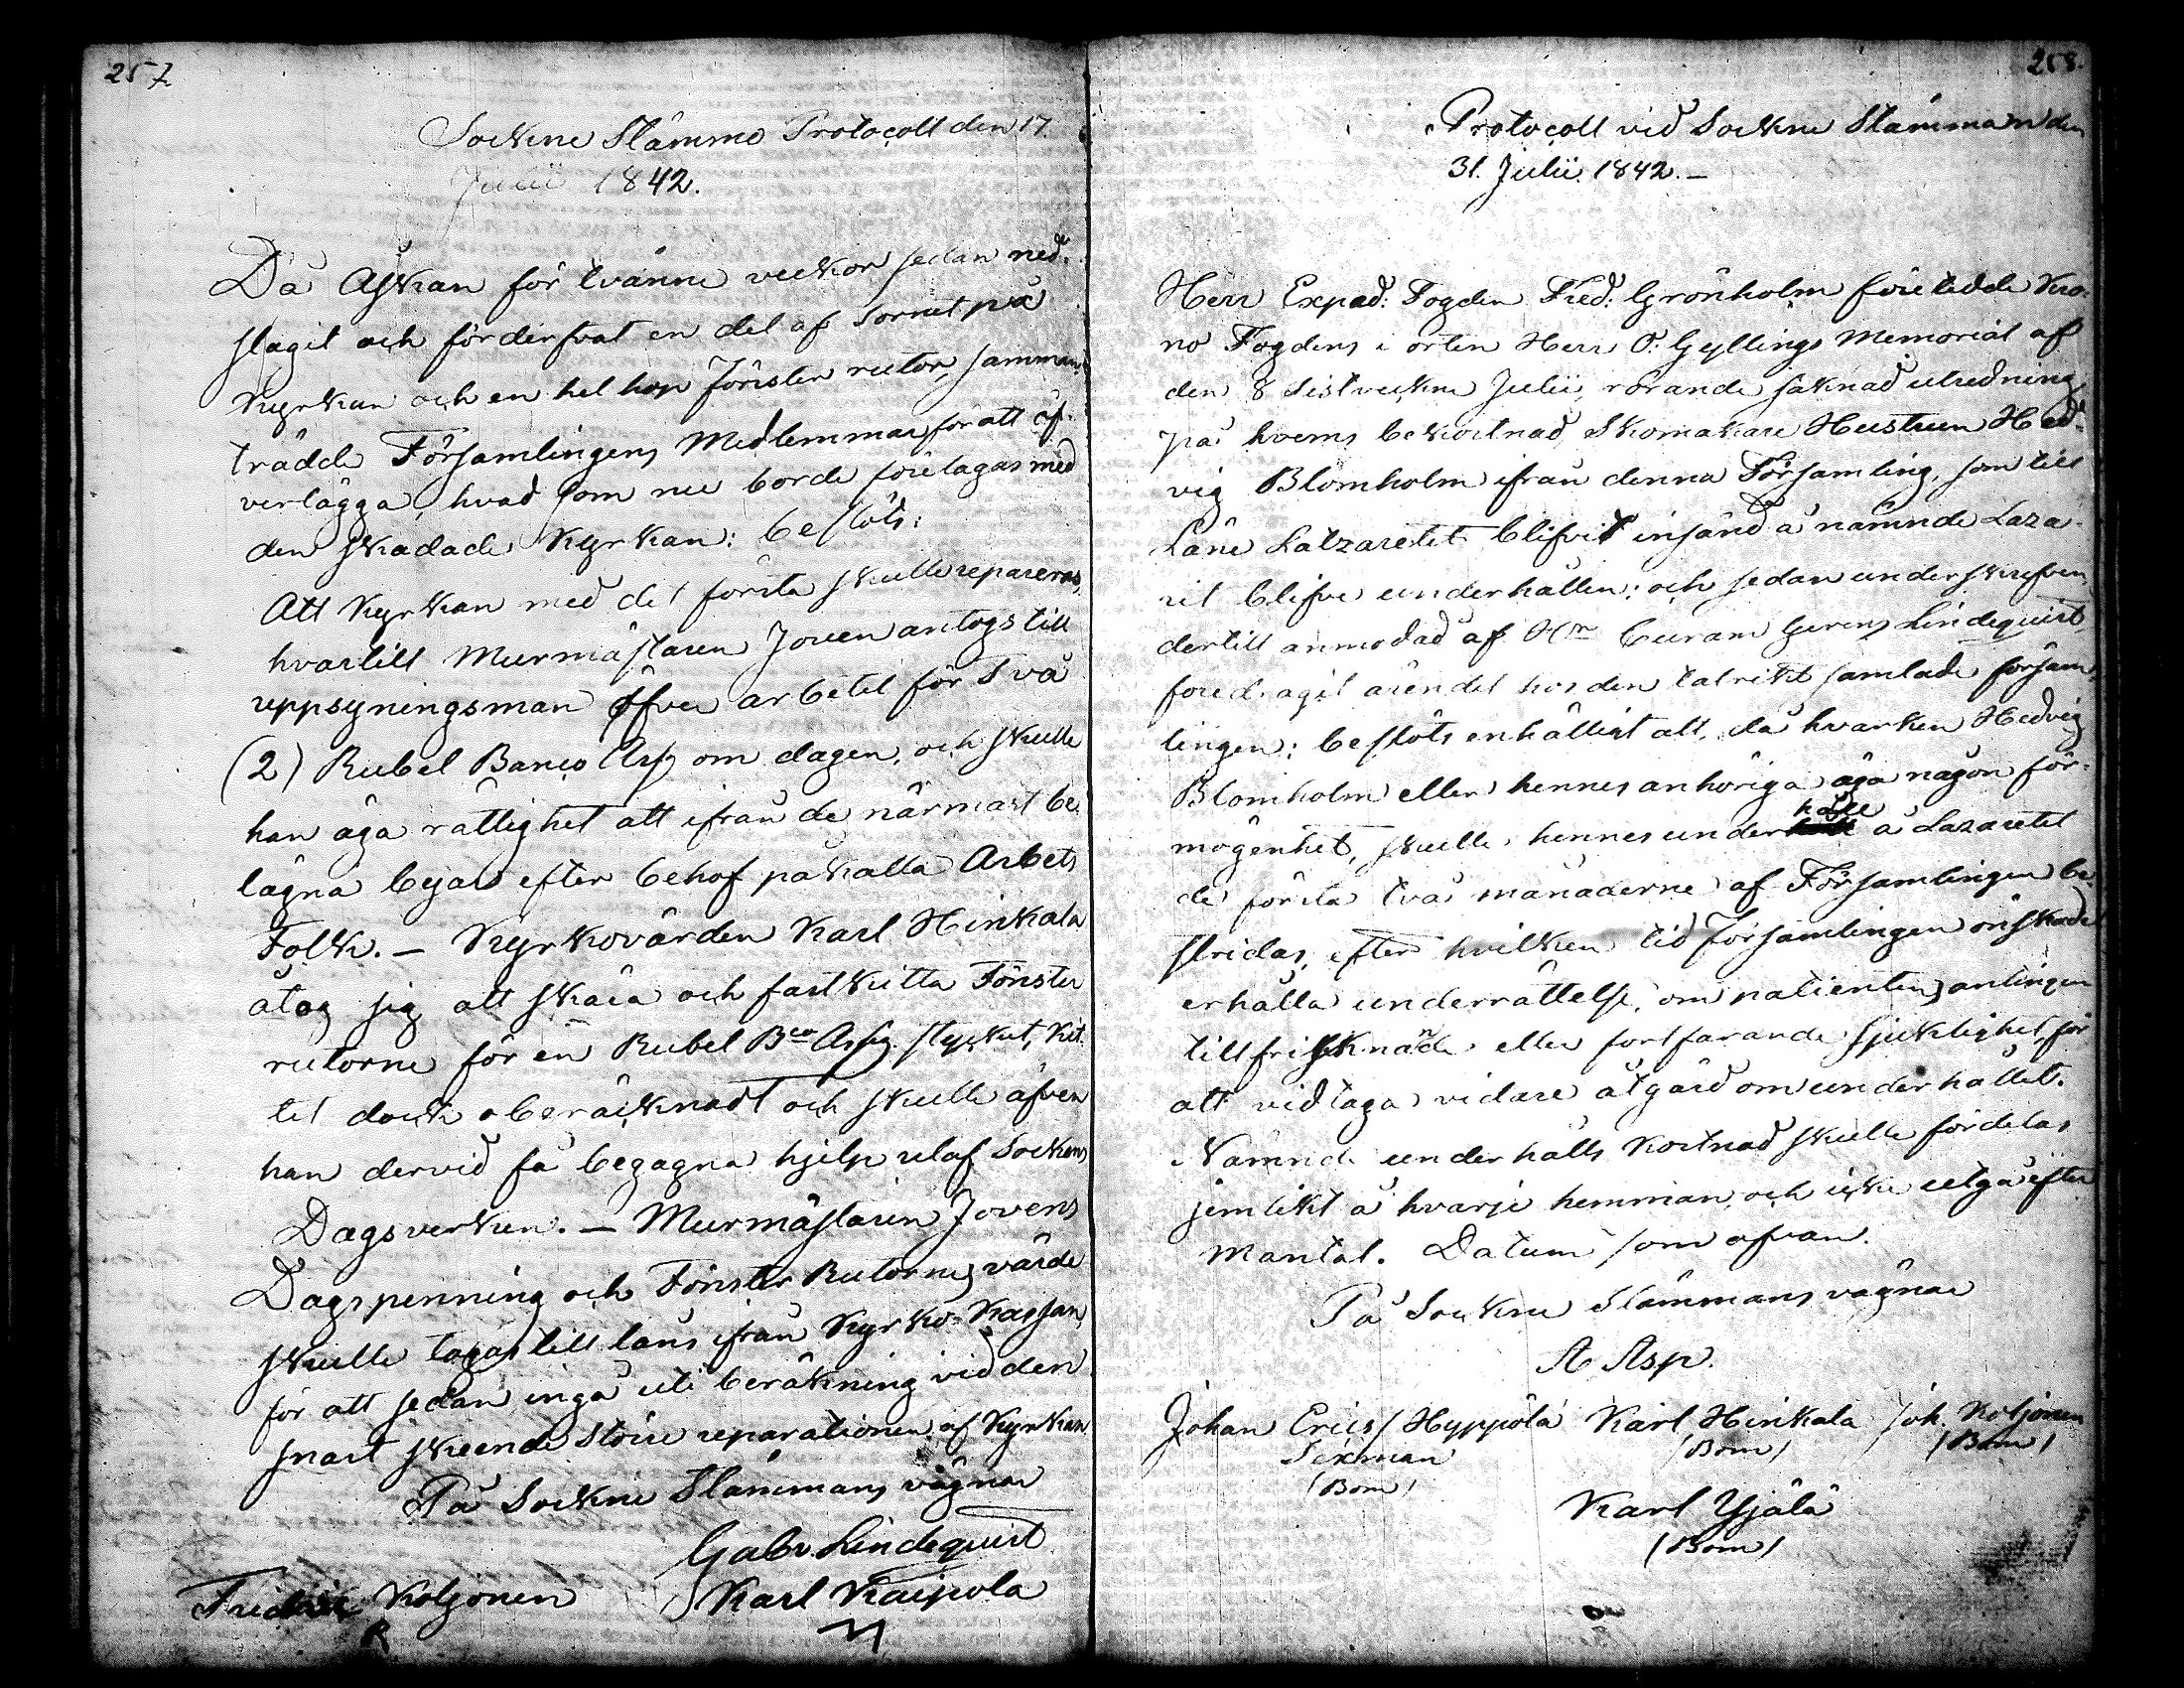 257
Sockne Stämmo Protocoll den 17.
Julii 1842.
Då Åskan för tvänne veckor sedan ned-
slagit och förderfvat en del af Tornet på
Kyrkan och en hel hop Fönster rutor, samman-
trädde Församlingens Medlemmar för att öf-
verlägga, hvad som nu borde företagas med
den skadade Kyrkan: beslöts:
Att Kyrkan med det första skulle repareras,
hvartill Murmästaren Joven antogs till
uppsyningsman öfver arbetet för Två
(2) Rubel Banco Ass. om dagen, och skulle
han äga rättighet att ifrån de närmast be-
lägna byar efter behof påkalla Arbets
Folk. – Kyrkovärden Karl Hinkala
åtog sig att skära och fastkitta Fönster
rutorne för en Rubel Bco Assig. stycket, Kit-
tet dock oberäcknadt och skulle äfven
han dervid få begagna hjelp utaf Sockens
Dagsverken. – Murmästaren Jovens
Dagspenning och Fönster Rutornes värde
skulle tagas till låns ifrån Kyrko-Kassan,
för att sedan ingå uti beräkning vid den
snart skeende större reparationen af Kyrkan
På Sockne Stämmans vägnar
Gabr. Lindequist
Fridrik Koljonen Karl Kaipola
258.
Protocoll vid Sockne Stämman den
31. Julii 1842. –
Herr Exped: Fogden Fred: Grönholm företedde Kro-
no Fogdens i orten Herr O: Gyllings Memorial af
den 8 sistvekne Julii, rörande saknad utredning,
på hvems bekostnad Skomakare Hustrun Hed-
vig Blomholm ifrån denna Församling, som till
Läne Latzaretet blifvit insänd å nämnde Laza-
ret blifve underhållen: och sedan underskrefven,
dertill anmodad af Hrr Curam Gerens Lindequist,
föredragit ärendet hos den talrikt samlade försam-
lingen: beslöts enhälligt att, då hvarken Hedvig
Blomholm eller hennes anhöriga äga någon för-
mögenhet, skulle hennes underhåll å Lazaretet
de första två månaderne af Församlingen be-
stridas, efter hvilken tid Församlingen önskade
erhålla underrättelse, om patientens antingen
tillfrisknande eller fortfarande sjuklighet, för
att vidtaga vidare åtgärd om underhållet.
Nämnde underhålls kostnad skulle fördelas
jemlikt å hvarje hemman, och icke utgå efter
Mantal. Datum som ofvan.
På Sockne Stämmans vägnar
A Asp.
Johan Erics/ Hyppölä Karl Hinkala Joh. Koljonen
Sexman /Bom/ /Bom/
/Bom/
Karl Yjälä
/Bom/